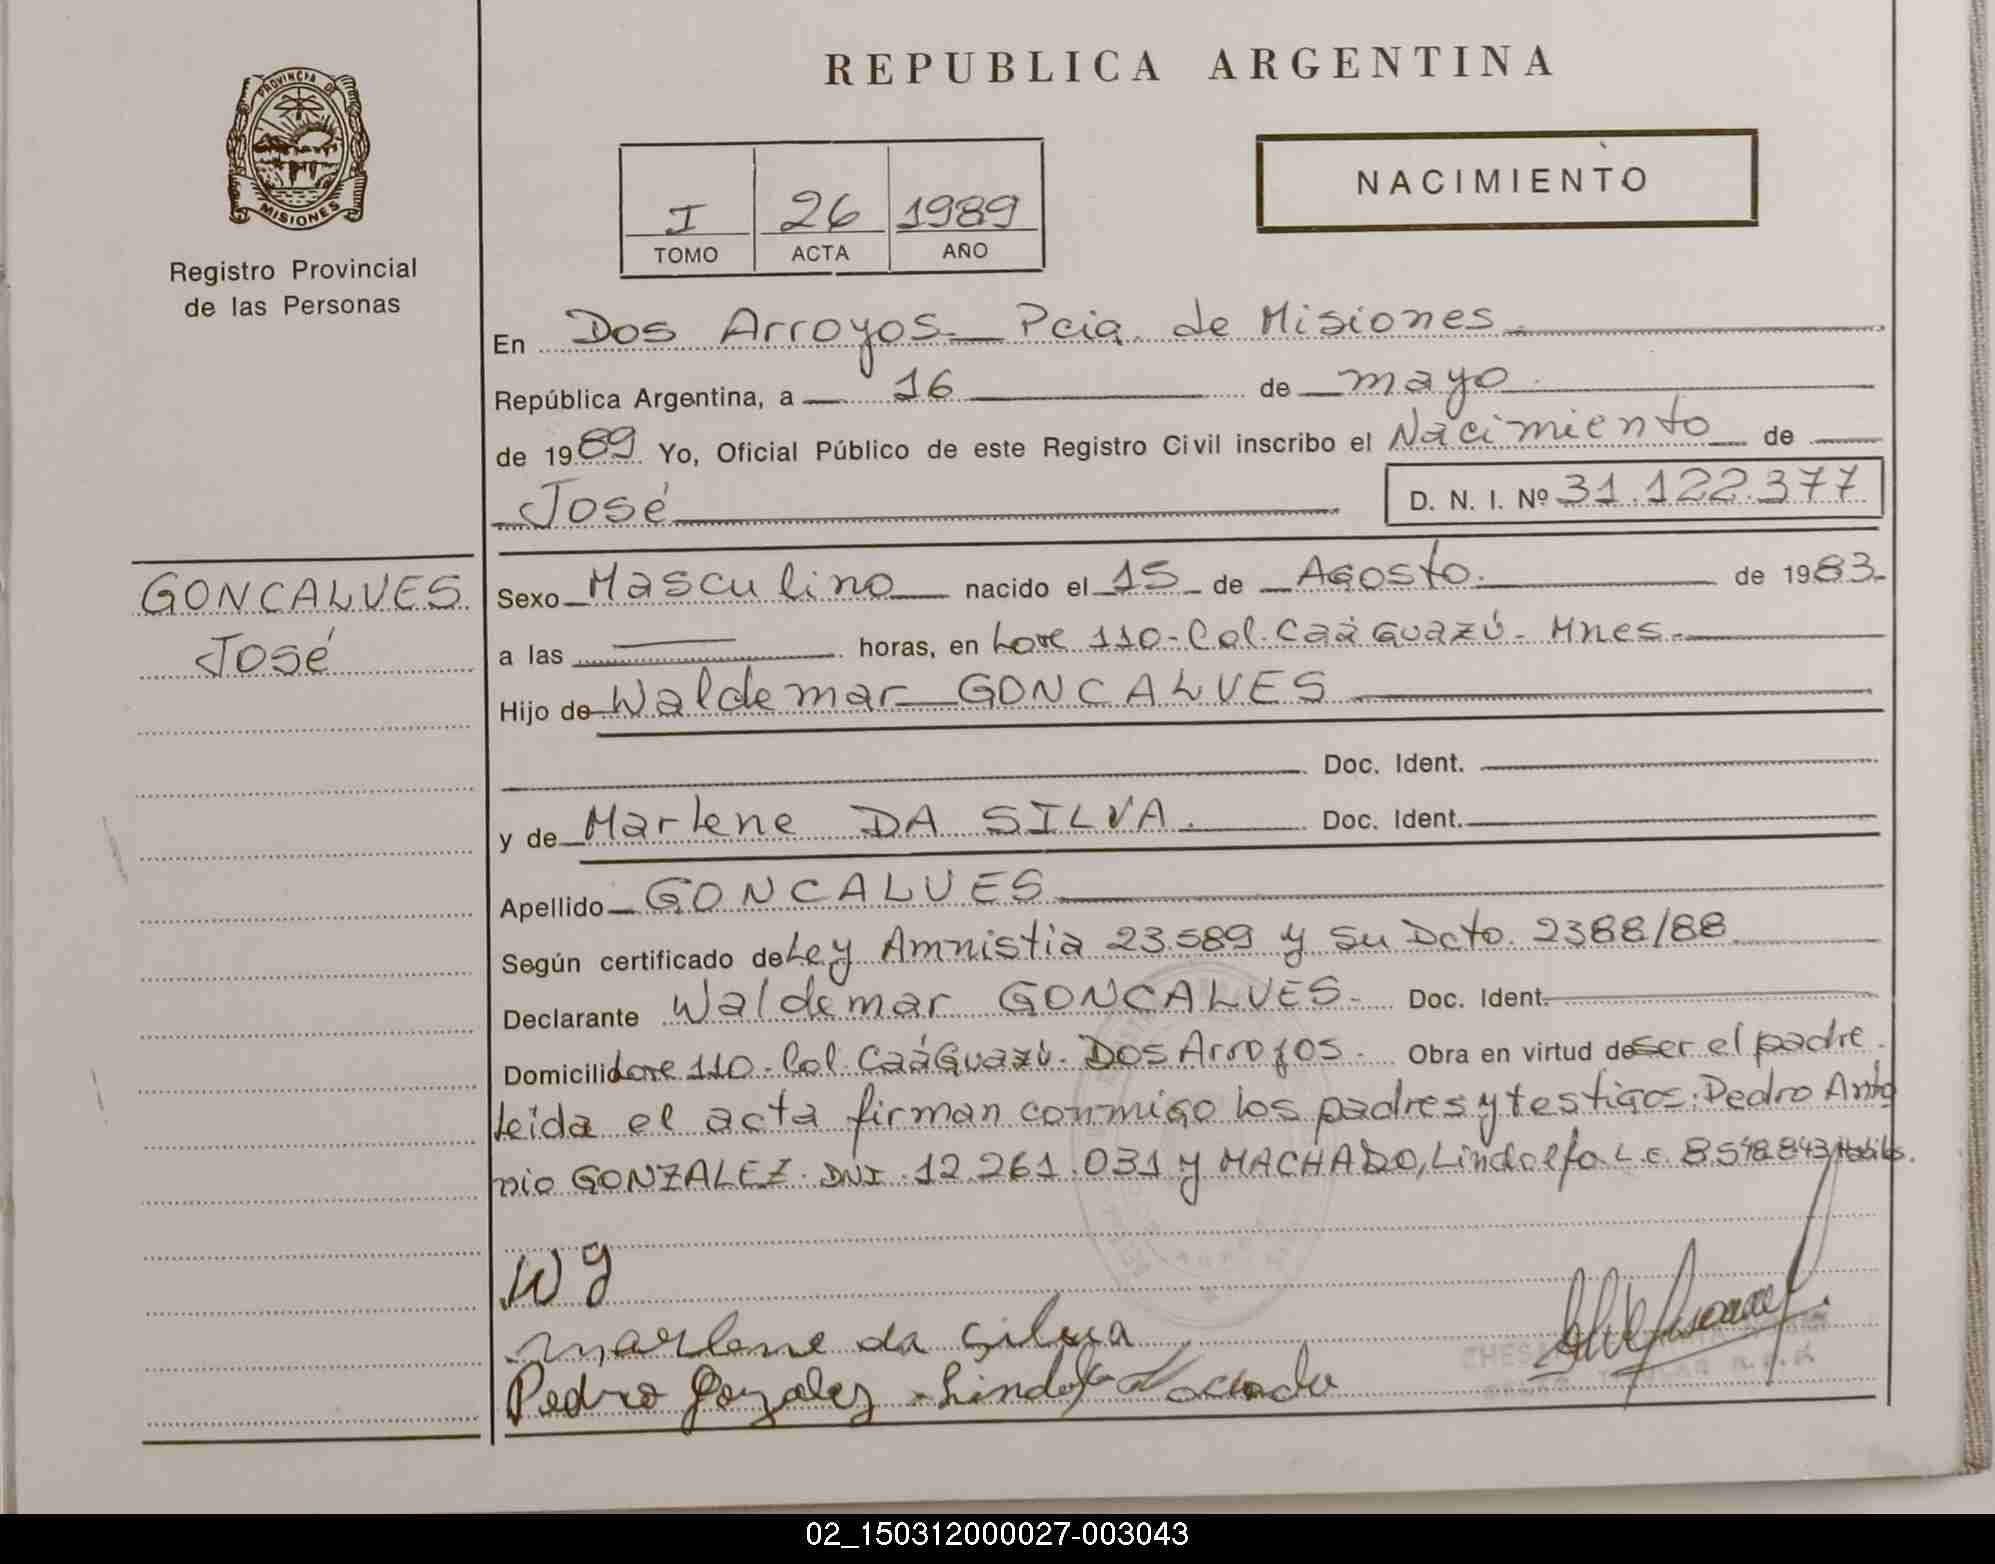 REPUBLICA ARGENTINA
PROVINCIA DE
MISIONES
Registro Provincial
de las Personas
I 26 1989
TOMO ACTA AÑO
NACIMIENTO
En Dos Arroyos - Pcia. de Misiones
República Argentina, a 16 de mayo
de 1989 Yo, Oficial Público de este Registro Civil inscribo el Nacimiento de
José D. N. I. Nº 31.122.377
GONCALVES
José
Sexo Masculino nacido el 15 de Agosto de 1983
a las horas, en Lote 110 - Col. Caá Guazú - Mnes.
Hijo de Waldemar GONCALVES
Doc. Ident.
y de Marlene DA SILVA. Doc. Ident.
Apellido GONCALVES
Según certificado de Ley Amnistia 23.589 y su Dcto. 2388/88
Declarante Waldemar GONCALVES. Doc. Ident.
Domicilio Lote 110 - Col. Caá Guazú. Dos Arroyos. Obra en virtud de ser el padre.
leída el acta firman conmigo los padres y testigos: Pedro Anto
nio GONZALEZ. DNI. 12.261.031 y MACHADO, Lindolfo L.E. 8.548.843
W g
marlene da Silva
Pedro gozalez Lindolfo Machado
02_150312000027-003043